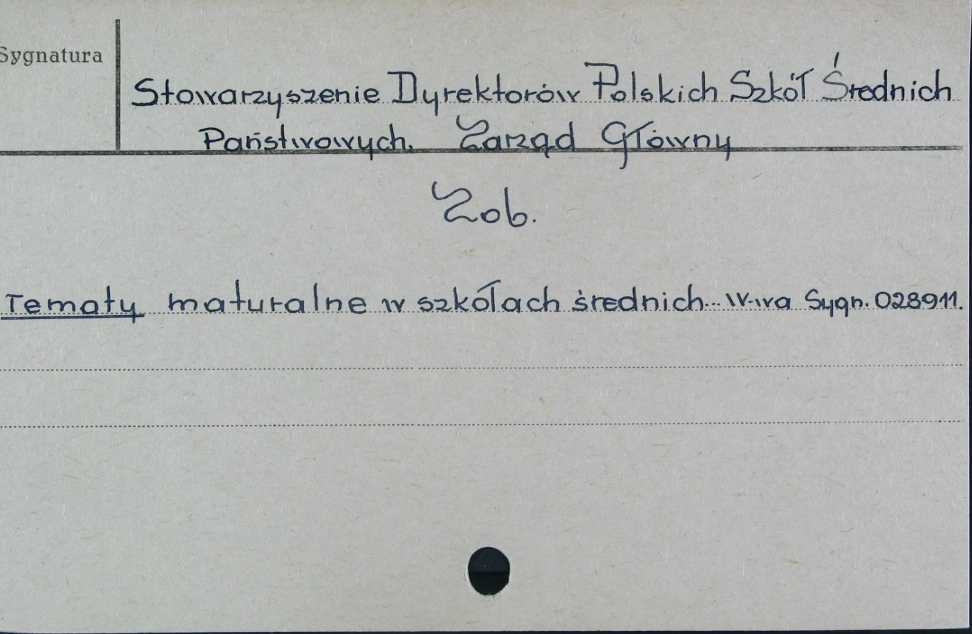 Sygnatura
Stowarzyszenie Dyrektorów Polskich Szkół Średnich
Państwowych. Zarząd Główny
Zob.
Tematy maturalne w szkołach średnich... W-wa Sygn. 028911.